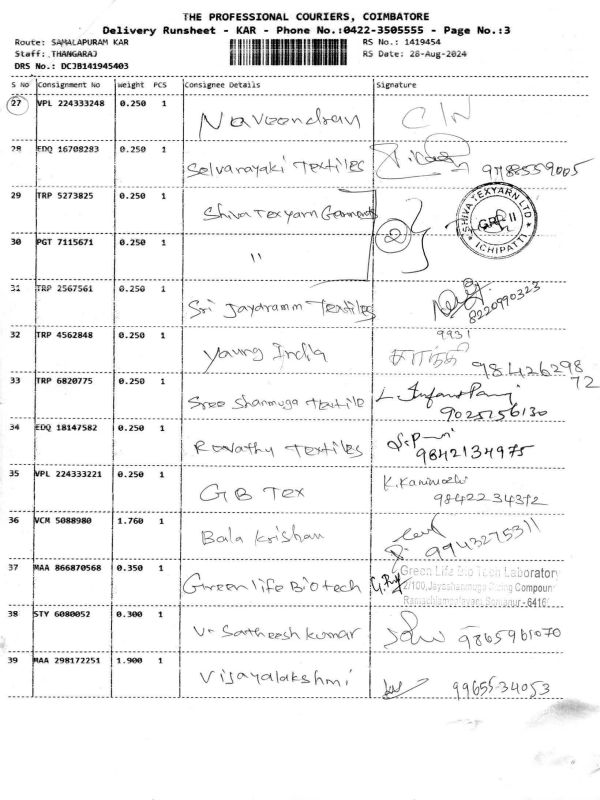 THE PROFESSIONAL COURIERS, COIMBATORE
Delivery Runsheet - KAR - Phone No.:0422-3505555 - Page No.:3
Route: SAMALAPURAM KAR RS No.: 1419454
Staff: THANGARAJ RS Date: 28-Aug-2024
DRS No.: DCJB141945403
S No Consignment No weight PCS Consignee Details Signature
27 VPL 224333248 0.250 1 Naveendran
28 EDQ 16708283 0.250 1 Selvanayaki Textiles 9788559005
29 TRP 5273825 0.250 1 Shiva Texyarn Garments 2
SHIVA TEXYARN LTD
ICHIPATTI
30 PGT 7115671 0.250 1 "
31 TRP 2567561 0.250 1 Sri Jaydramm Textiles 8220990323
32 TRP 4562848 0.250 1 Young India 9931 சாந்தி 98426298
72
33 TRP 6820775 0.250 1 Sree Shanmuga textile 9025256130
34 EDQ 18147582 0.250 1 Revathy Textiles 9842134975
35 VPL 224333221 0.250 1 GB Tex K. Kanimozhi
9842234372
36 VCM 5088980 1.760 1 Bala Krishan 9943275311
37 MAA 866870568 0.350 1 Green life Bio tech Green Life Bio Tech Laboratory
2/100, Compoun
Somanur - 6416
38 STY 6080052 0.300 1 V. Satheesh kumar 9865961070
39 MAA 298172251 1.900 1 Vijayalakshmi 9965534053